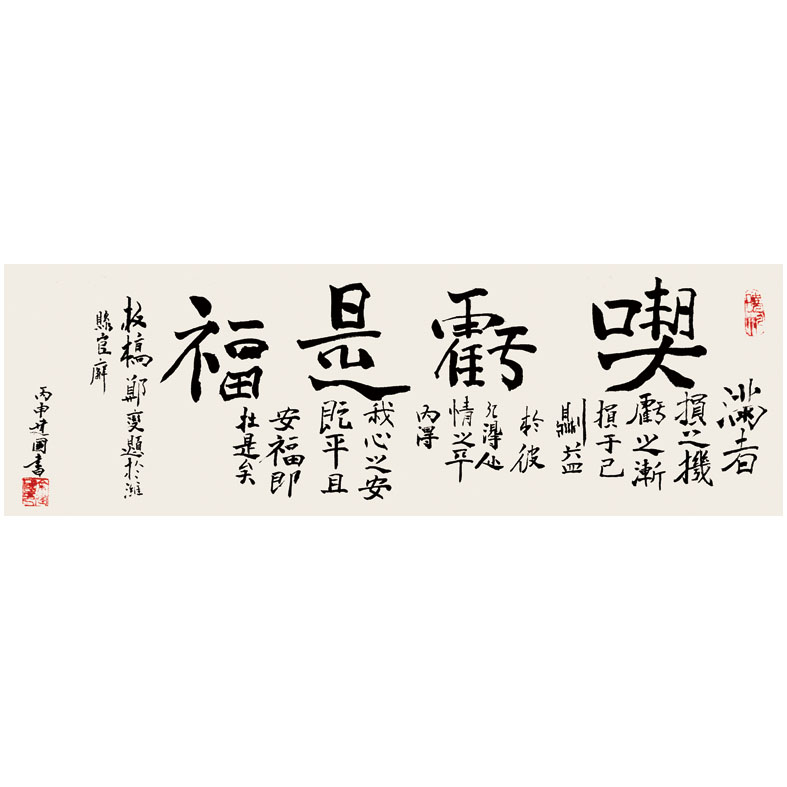 喫虧是福
滿者
損之機
虧之漸
損于己
則益
於彼
外得人
情之平
內得
我心之安
既平且
安福即
在是矣
板橋鄭燮題於濰
縣官廨
丙申建國書